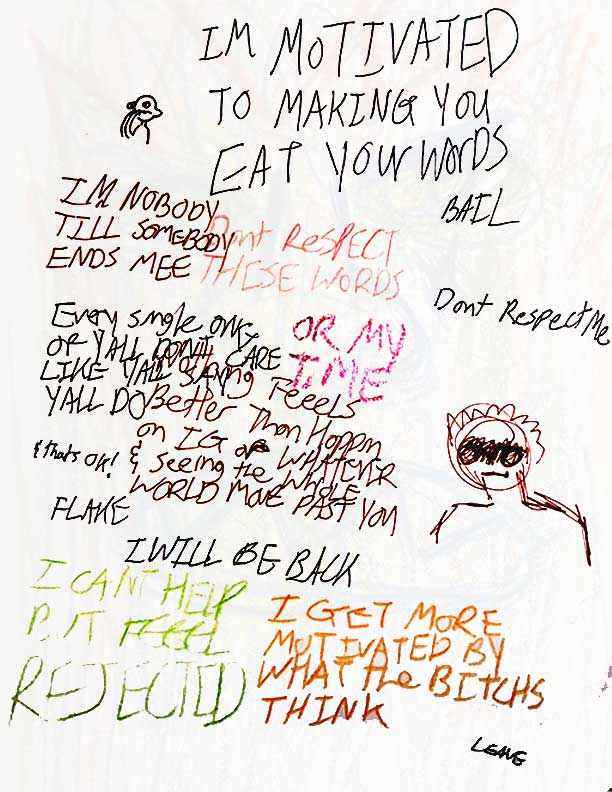 IM MOTIVATED
TO MAKING YOU
EAT YOUR WORDS
BAIL
IM NOBODY
TILL SOMEBODY
ENDS MEE
Dont RESPECT
THESE WORDS
Dont Respect Me
OR MY
TIME
Every single one
OF YALL DONT CARE
LIKE YALL SAY
YALL DO
& thats OK!
FLAKE
Nothing Feeels
Better Than Hoppin
on IG or WHATEVER
& seeing the WHOLE
WORLD MOVE PAST YOU
I WILL BE BACK
I CANT HELP
BUT FEEEL
REJECTED
I GET MORE
MOTIVATED BY
WHAT the BITCHS
THINK
LEAVE